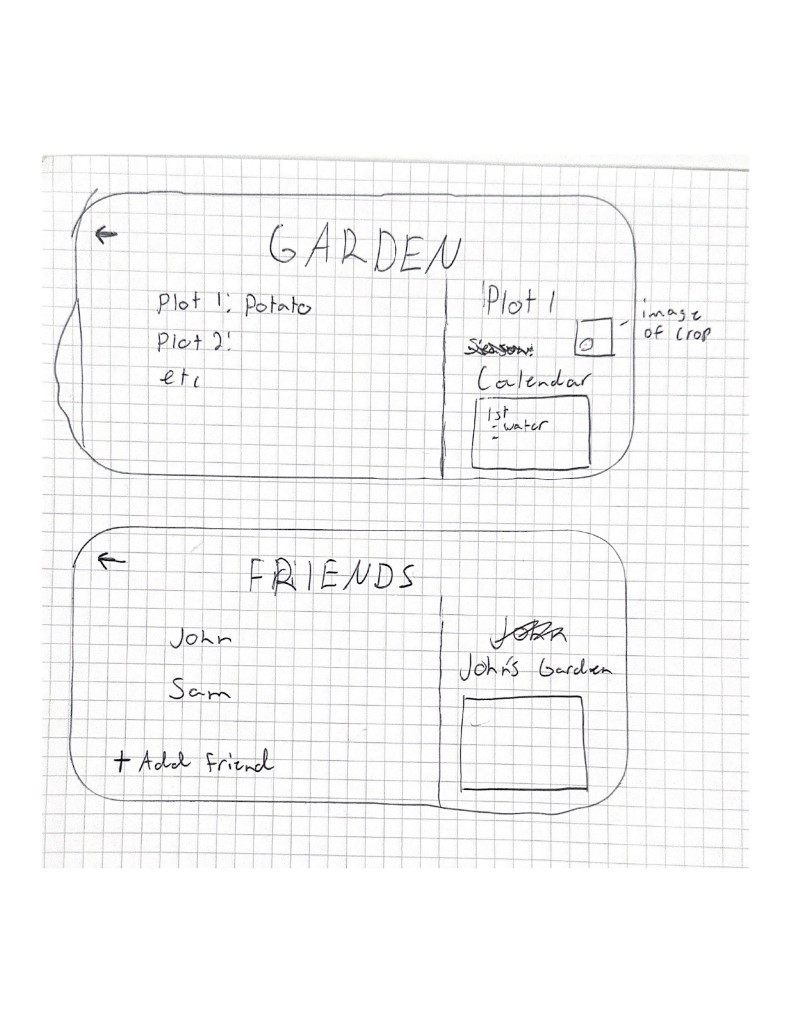 ←
GARDEN
Plot 1: Potato
Plot 2:
etc
Plot 1
image
of crop
Season:
Calendar
1st
- water
-
←
FRIENDS
John
Sam
+ Add friend
John
John's Garden